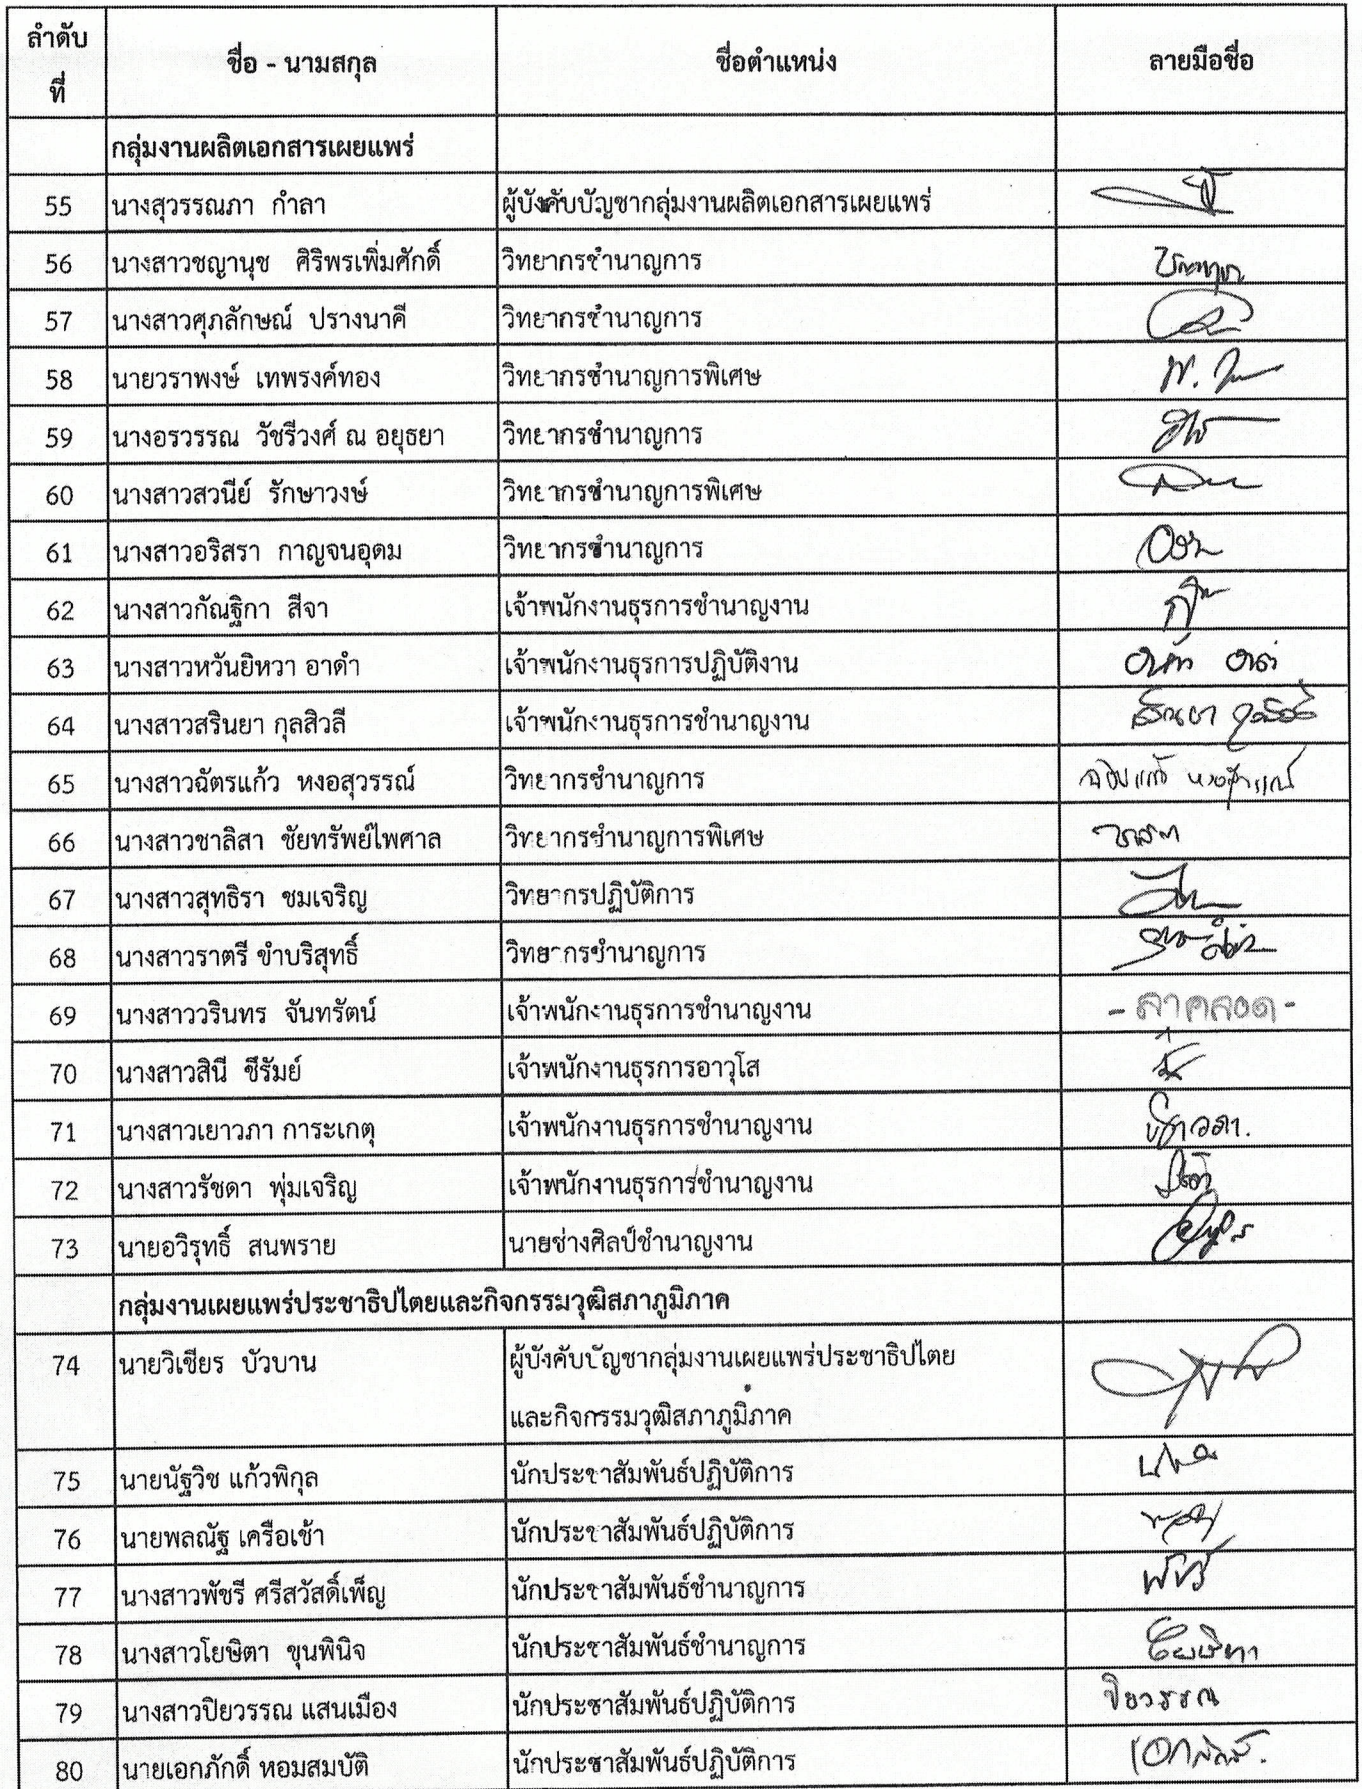 ลำดับที่ ชื่อ - นามสกุล ชื่อตำแหน่ง ลายมือชื่อ
กลุ่มงานผลิตเอกสารเผยแพร่
55 นางสุวรรณภา กำลา ผู้บังคับบัญชากลุ่มงานผลิตเอกสารเผยแพร่
56 นางสาวชญานุช ศิริพรเพิ่มศักดิ์ วิทยากรชำนาญการ
57 นางสาวศุภลักษณ์ ปรางนาคี วิทยากรชำนาญการ
58 นายวราพงษ์ เทพรงค์ทอง วิทยากรชำนาญการพิเศษ
59 นางอรวรรณ วัชรีวงศ์ ณ อยุธยา วิทยากรชำนาญการ
60 นางสาวสวนีย์ รักษาวงษ์ วิทยากรชำนาญการพิเศษ
61 นางสาวอริสรา กาญจนอุดม วิทยากรชำนาญการ
62 นางสาวกัณฐิกา สีจา เจ้าพนักงานธุรการชำนาญงาน
63 นางสาวหวันยิหวา อาดำ เจ้าพนักงานธุรการปฏิบัติงาน
64 นางสาวสรินยา กุลสิวลี เจ้าพนักงานธุรการชำนาญงาน
65 นางสาวฉัตรแก้ว หงอสุวรรณ์ วิทยากรชำนาญการ
66 นางสาวชาลิสา ชัยทรัพย์ไพศาล วิทยากรชำนาญการพิเศษ ชาลิสา
67 นางสาวสุทธิรา ชมเจริญ วิทยากรปฏิบัติการ
68 นางสาวราตรี ขำบริสุทธิ์ วิทยากรชำนาญการ
69 นางสาววรินทร จันทรัตน์ เจ้าพนักงานธุรการชำนาญงาน - ลาคลอด -
70 นางสาวสินี ชีรัมย์ เจ้าพนักงานธุรการอาวุโส
71 นางสาวเยาวภา การะเกตุ เจ้าพนักงานธุรการชำนาญงาน
72 นางสาวรัชดา พุ่มเจริญ เจ้าพนักงานธุรการชำนาญงาน
73 นายอวิรุทธิ์ สนพราย นายช่างศิลป์ชำนาญงาน
กลุ่มงานเผยแพร่ประชาธิปไตยและกิจกรรมวุฒิสภาภูมิภาค
74 นายวิเชียร บัวบาน ผู้บังคับบัญชากลุ่มงานเผยแพร่ประชาธิปไตย
และกิจกรรมวุฒิสภาภูมิภาค
75 นายนัฐวิช แก้วพิกุล นักประชาสัมพันธ์ปฏิบัติการ
76 นายพลณัฐ เครือเช้า นักประชาสัมพันธ์ปฏิบัติการ
77 นางสาวพัชรี ศรีสวัสดิ์เพ็ญ นักประชาสัมพันธ์ชำนาญการ พัชรี
78 นางสาวโยษิตา ขุนพินิจ นักประชาสัมพันธ์ชำนาญการ โยษิตา
79 นางสาวปิยวรรณ แสนเมือง นักประชาสัมพันธ์ปฏิบัติการ ปิยวรรณ
80 นายเอกภักดิ์ หอมสมบัติ นักประชาสัมพันธ์ปฏิบัติการ